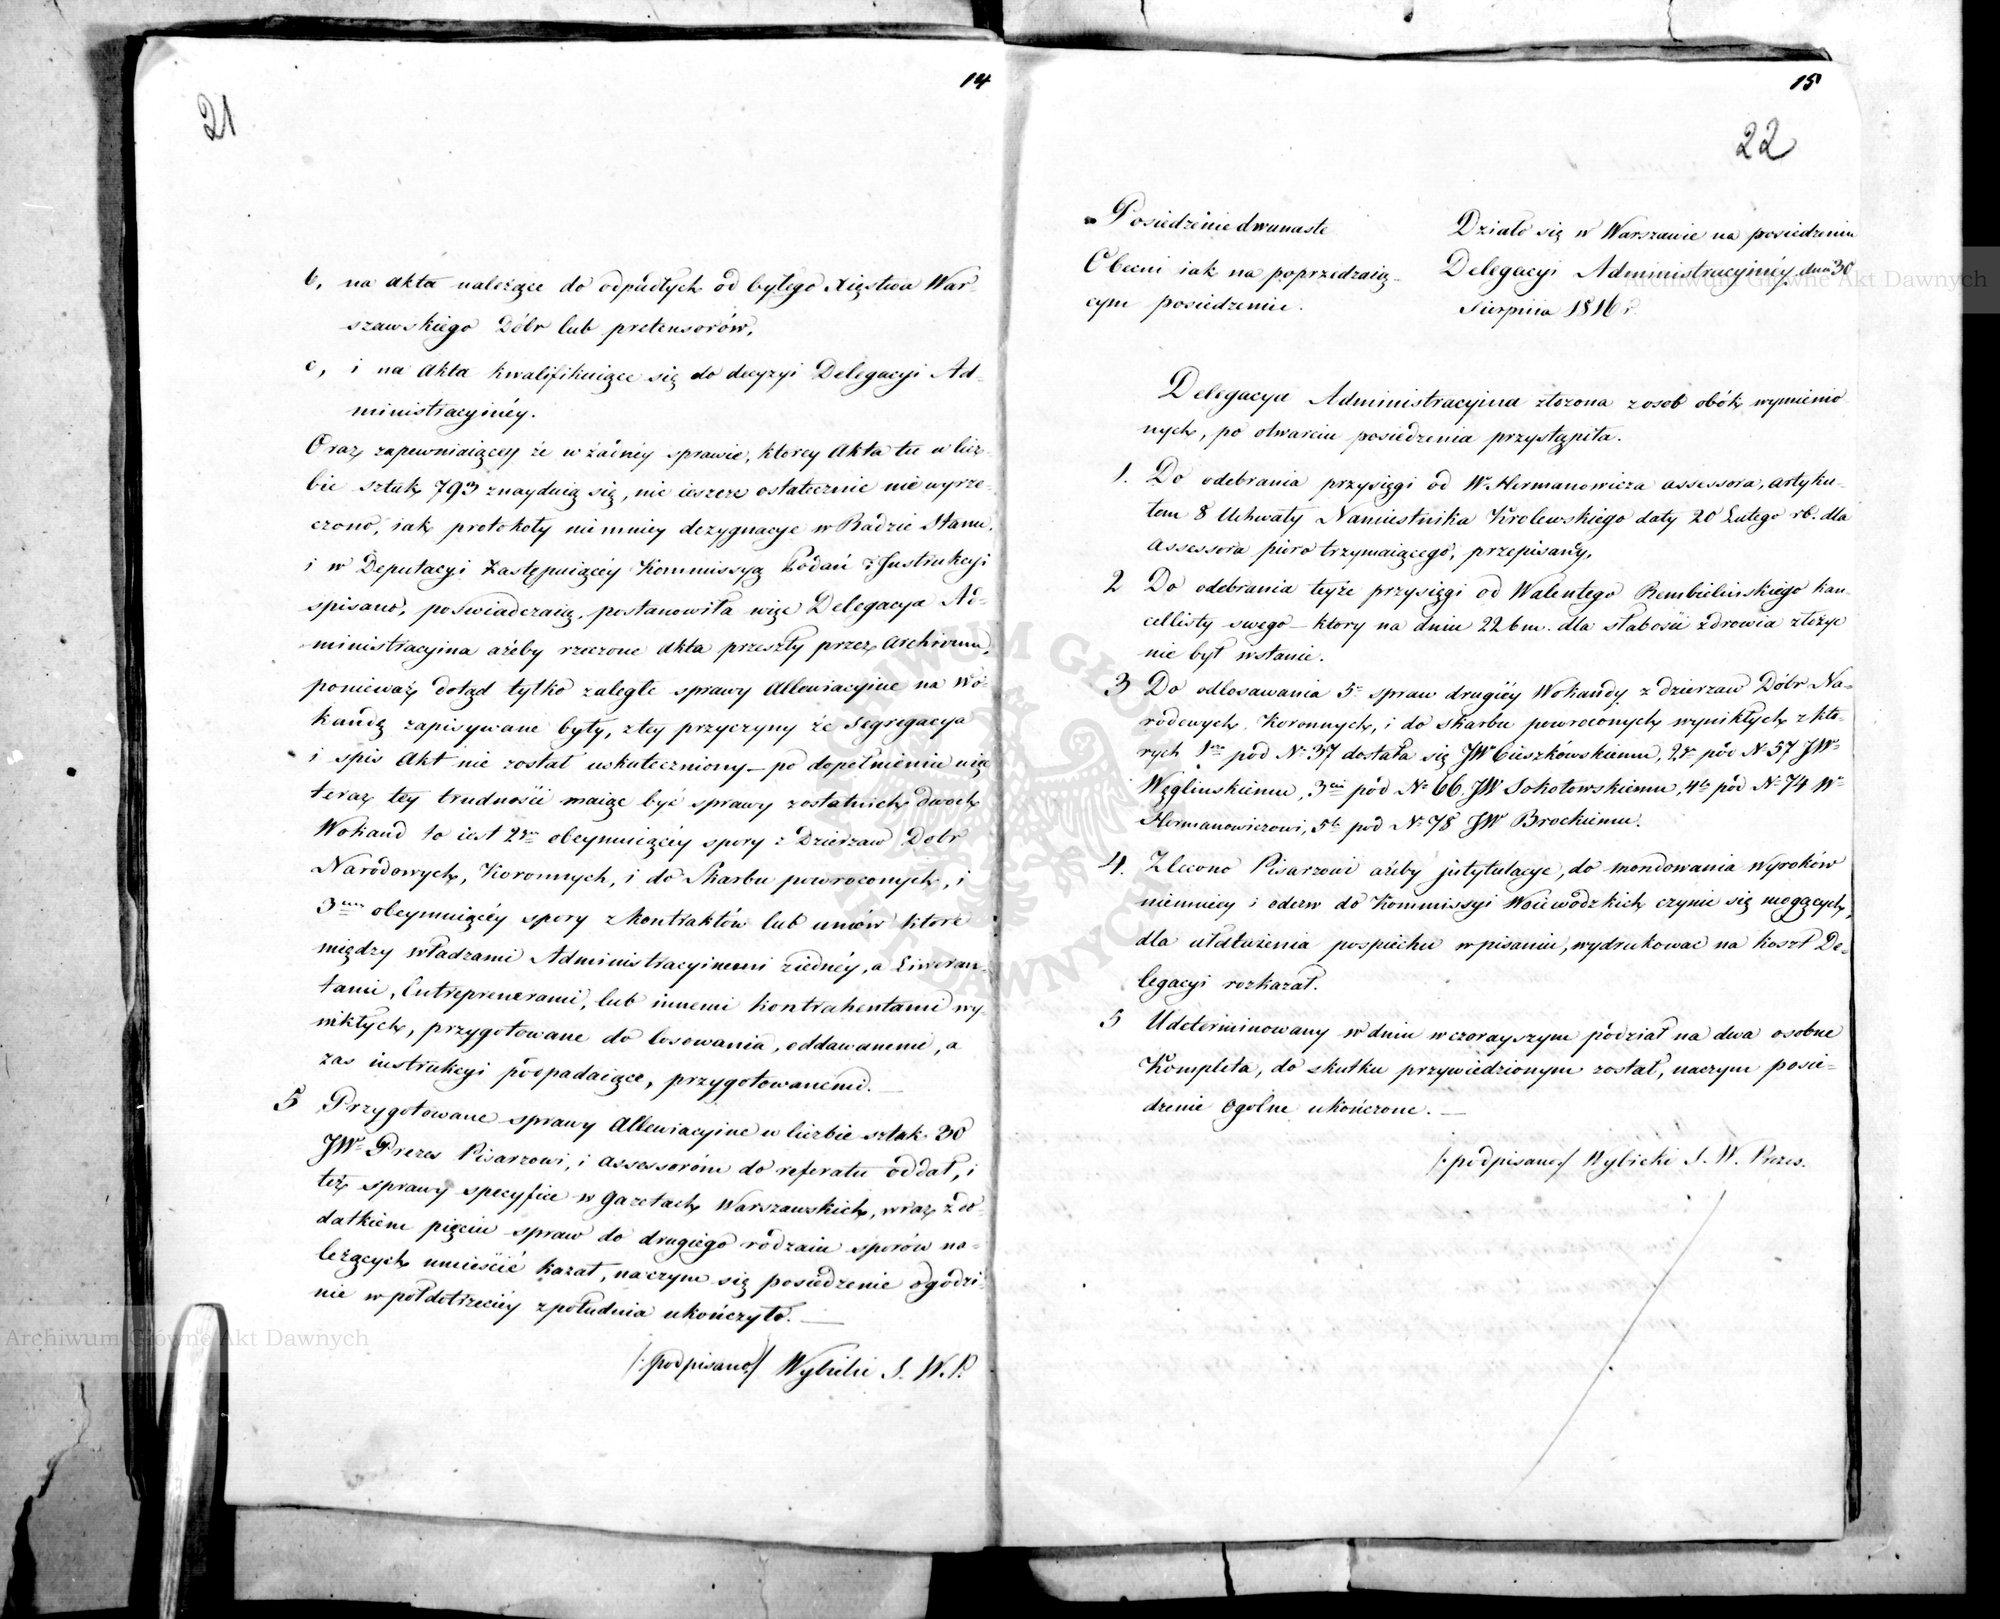 14
21
b, na akta należące do odpadłych od byłego Xięstwa War-
szawskiego Dóbr lub pretensorów,
c, i na akta kwalifikuiące się do decyzyi Delegacyi Ad-
ministracyinéy.
Oraz zapewniaiącey że w żadnéy sprawie, ktorey Akta tu w licz-
bie sztuk 793 znayduią się, nic ieszcze ostatecznie nie wyrze-
czono, iak protokoły niemniey dezygnacye w Radzie Stanu,
i w Deputacyi Zastępuiącéy Kommissyą Podań i Instrukcyi
spisane, poświadczaią, postanowiła więc Delegacya Ad-
ministracyina ażeby rzeczone akta przeszły przez Archivum,
ponieważ dotąd tylko zaległe sprawy Allewiacyine na Wo-
kandę zapisywane były, ztey przyczyny że Segregacya
i spis Akt nie został uskuteczniony – po dopełnieniu więc
teraz tey trudności maiąc być sprawy zostatnich dwoch
Wokand to iest 2éy obeymuiącéy spory z Dzierzaw Dobr
Narodowych, Koronnych, i do Skarbu powroconych, i
3éy obeymuiącéy spory z kontraktów lub umów ktore
między władzami Administracyinemi ziednéy, a Liweran-
tami, Entreprenerami, lub innemi kontrahentami wy-
nikłych, przygotowane do losowania, oddawanemi, a
zas instrukcyi podpadaiące, przygotowanemi. —
5 Przygotowane sprawy Allewiacyine w liczbie sztuk 30
JW Prezes Pisarzowi, i assessorom do referatu oddał, i
też sprawy specyfice w Gazetach Warszawskich, wraz z do-
datkiem pięciu spraw do drugiego rodzaiu sporów na-
leżących umieścić kazał, naczym się posiedzenie o godzi-
nie w pół do trzeciéy z południa ukończyło. —
/:podpisano:/ Wybicki S. W. P.
15
22
Posiedzenie dwunaste
Obecni iak na poprzedzaią-
cym posiedzeniu.
Działo się w Warszawie na posiedzeniu
Delegacyi Administracyinéy dnia 30
Sierpnia 1816 r.
Delegacya Administracyina złożona z osob obok wymienio-
nych, po otwarciu posiedzenia przystąpiła.
1. Do odebrania przysięgi od W. Hermanowicza assessora, artyku-
łem 8 Uchwały Namiestnika Krolewskiego daty 20 Lutego rb. dla
Assessora pioro trzymaiącego, przepisany,
2 Do odebrania teyże przysięgi od Walentego Rembielinskiego kan-
cellisty swego – ktory na dniu 22 bm. dla słabości zdrowia złożyc
nie był wstanie.
3 Do odlosawania 5 spraw drugiéy Wokandy z dzierzaw Dóbr Na-
rodowych Koronnych, i do skarbu powroconych wynikłych z kto-
rych 1sza pod N. 37 dostała się JW Cieszkówskiemu, 2a pod N 57 JW
Węglinskiemu, 3cia pód N 66 JW Sokołowskiemu, 4ta pód N 74 W
Hermanowiczowi, 5ta pod N. 78 JW Brockiemu.
4. Zlecono Pisarzowi ażeby intytulacye, do mondowania Wyroków
niemniey i odezw do Kommissyi Woiewódzkich czynic się mogących,
dla ułatwienia pospiechu w pisaniu, wydrukowac na koszt De-
legacyi rozkazał.
5 Udeterminowany w dniu wczorayszym podział na dwa osobne
Kompleta, do skutku przywiedzionym został, naczym posie-
dzenie Ogolne ukończone. —
/:podpisano:/ Wybicki S. W. Prezes.
Archiwum Główne Akt Dawnych
Archiwum Główne Akt Dawnych
ARCHIWUM GŁÓWNE AKT DAWNYCH